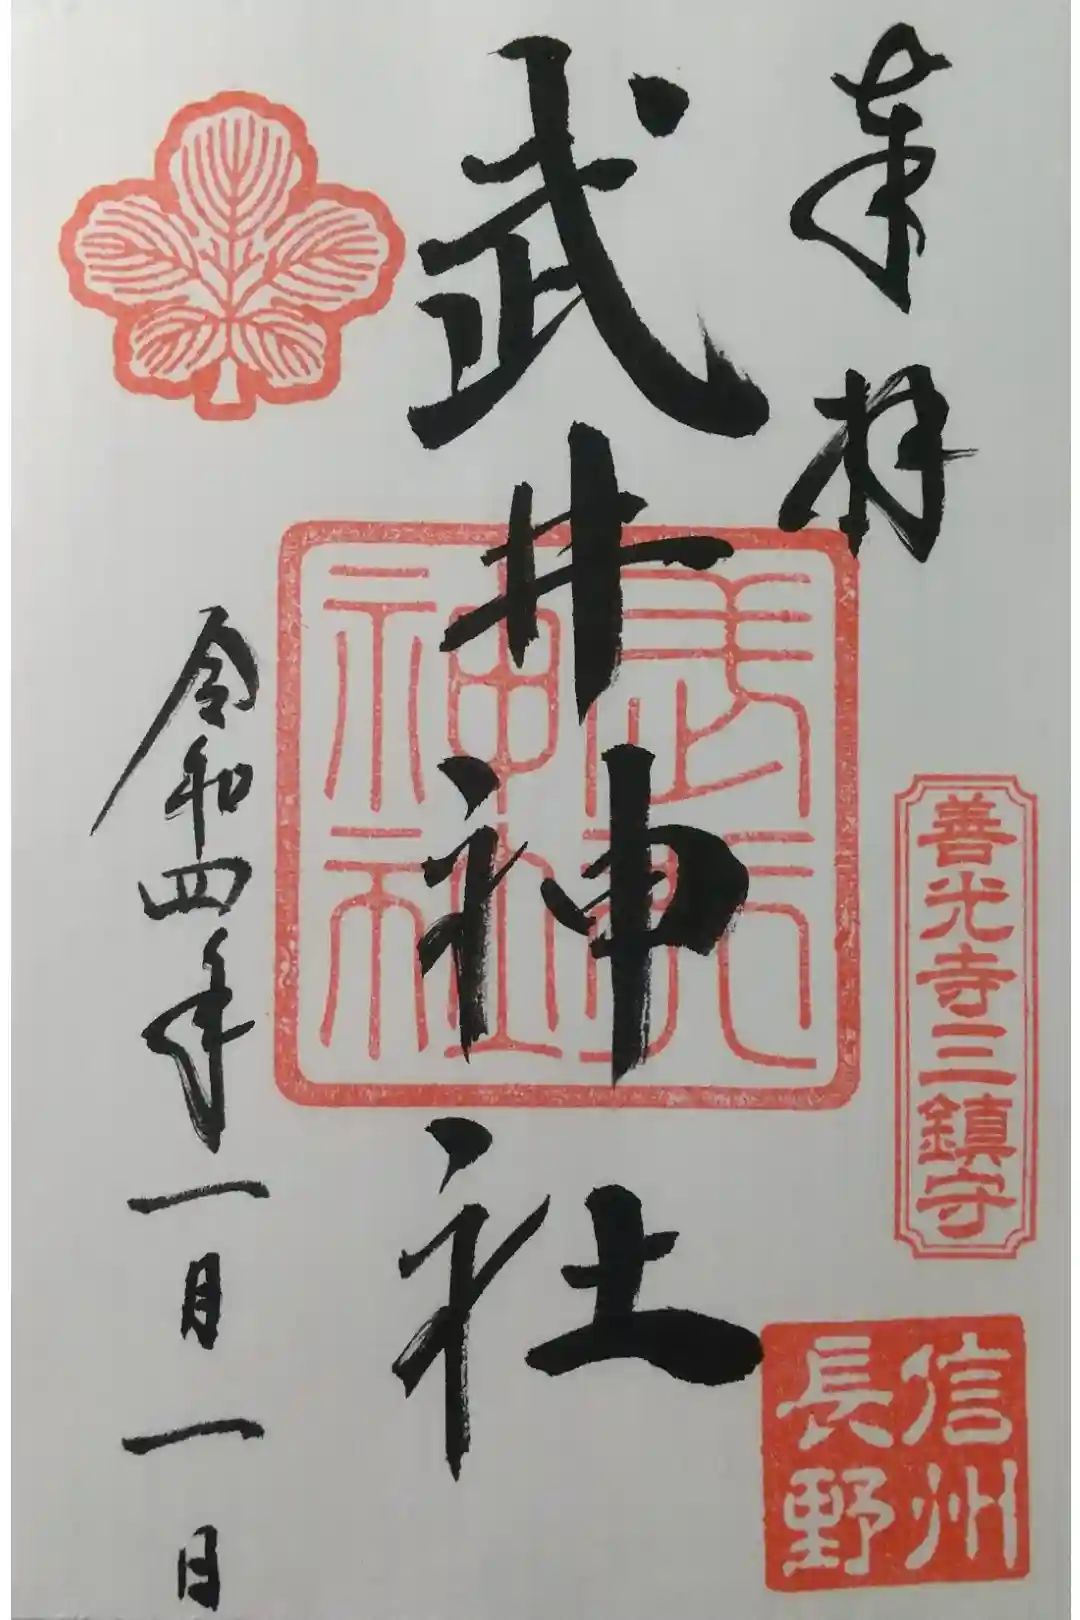 奉拝
善光寺三鎮守
信州
長野
武井神社
武井
神社
令和四年一月一日